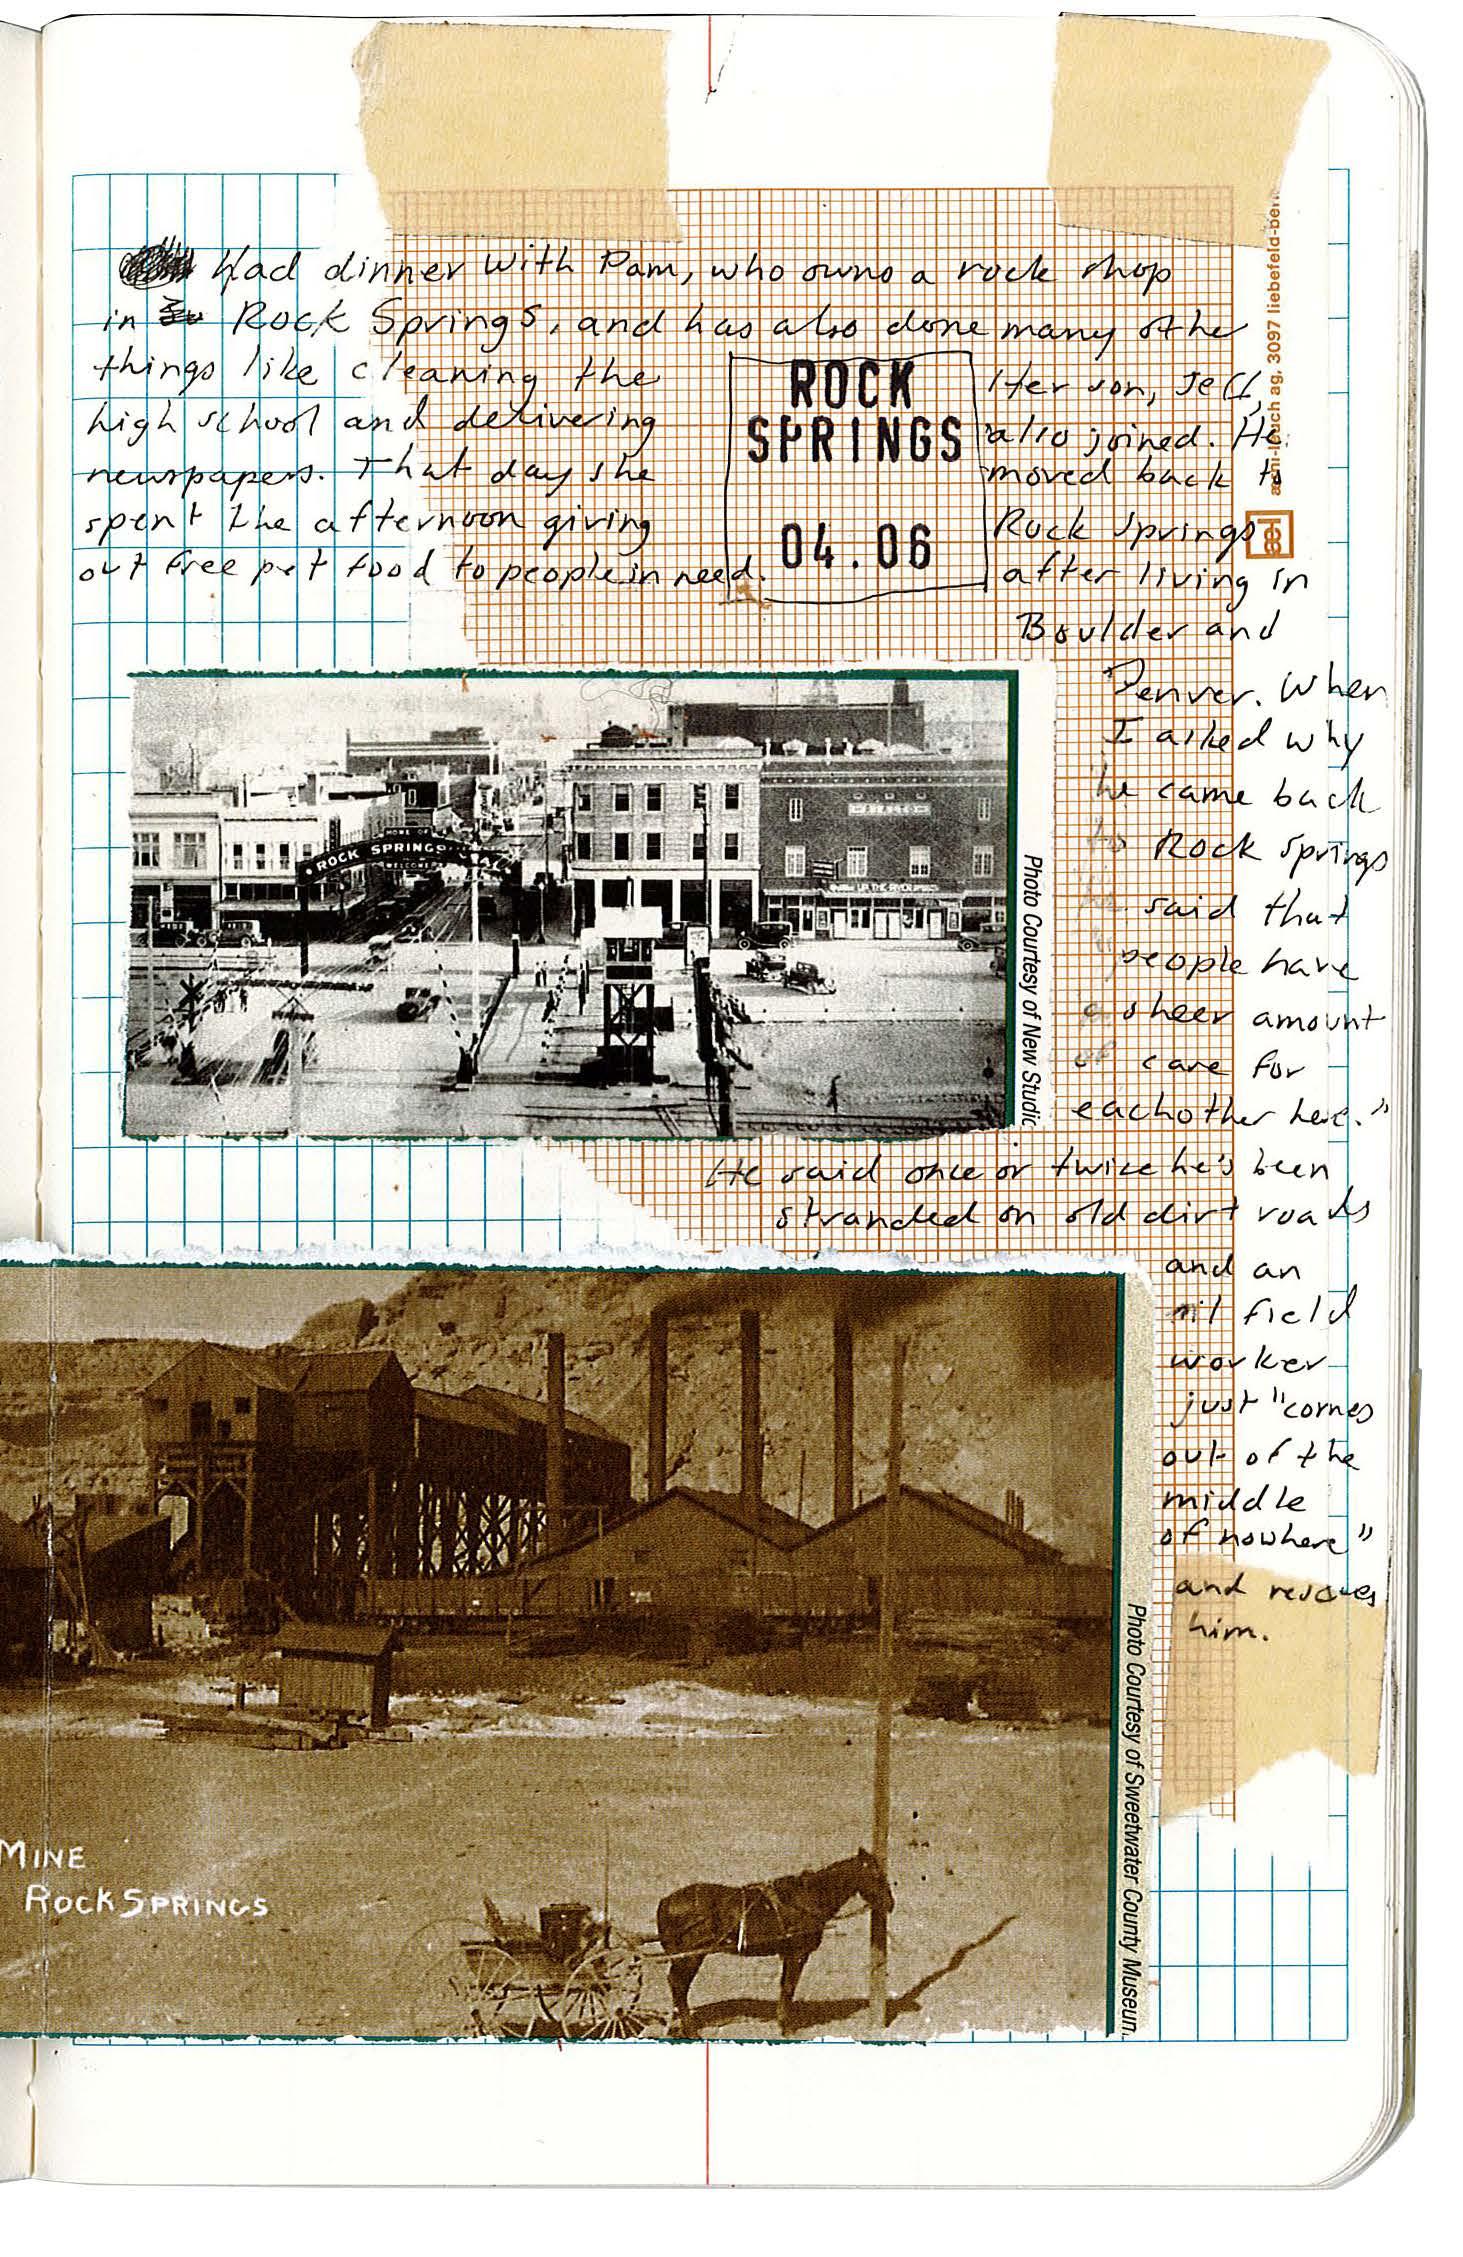 Had dinner with Pam, who owns a rock shop
in Rock Springs, and has also done many othe
things like cleaning the
high school and delivering
newspapers. That day she
spent the afternoon giving
out free pet food to people in need.
ROCK
SPRINGS
04.06
Her son, Jeff,
also joined. He
moved back to
Rock Springs
after living in
Boulder and
Denver. When
I asked why
he came back
to Rock Springs
he said that
people have
a sheer amount
of care for
eachother here."
He said once or twice he's been
stranded on old dirt roads
and an
oil field
worker
just "comes
out of the
middle
of nowhere"
and rescues
him.
3097 liebefeld-ber
HOME OF
ROCK SPRINGS COAL
WELCOME
Photo Courtesy of New Studic
MINE
ROCK SPRINGS
Photo Courtesy of Sweetwater County Museum.